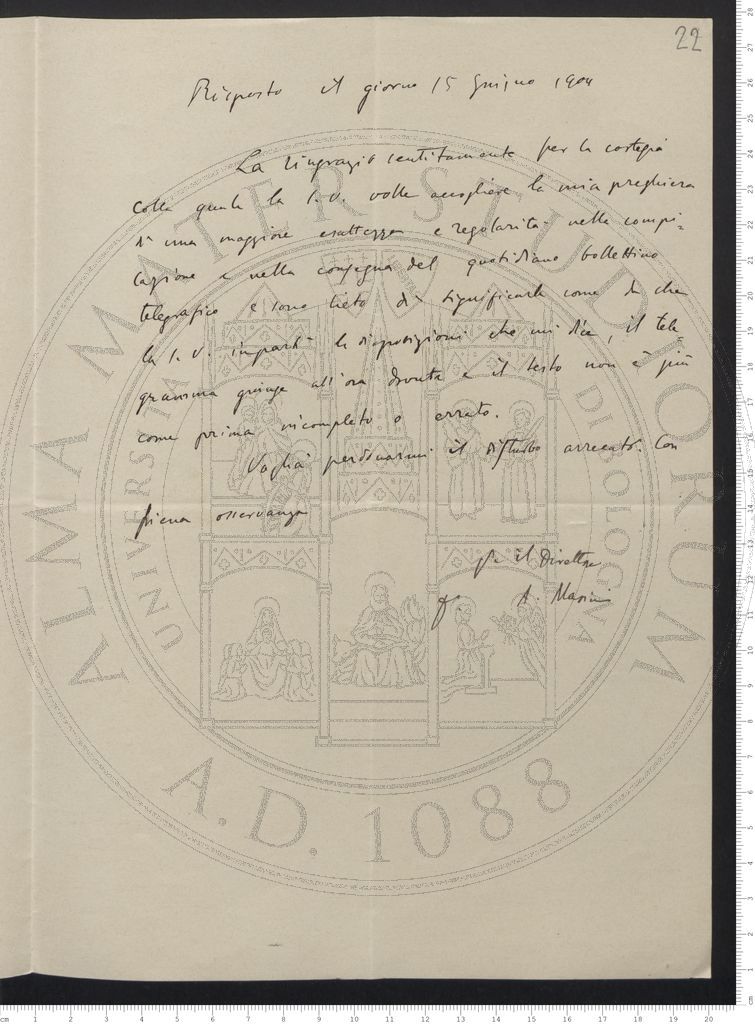 22
Risposto il giorno 15 Giugno 1904
La ringrazio sentitamente per la cortesia
colla quale la S.V. volle accogliere la mia preghiera
di una maggiore esattezza e regolarità nella compi=
lazione e nella consegna del quotidiano bollettino
telegrafico e sono lieto di significarle come da che
la S.V. impartì le disposizioni che mi dice, il tele
gramma giunge all'ora dovuta e il testo non è più
come prima incompleto o errato.
Voglia perdonarmi il disturbo arrecato. Con
piena osservanza
pe il Direttore
A. Masini
ALMA MATER STUDIORUM
UNIVERSITÀ DI BOLOGNA
A.D. 1088